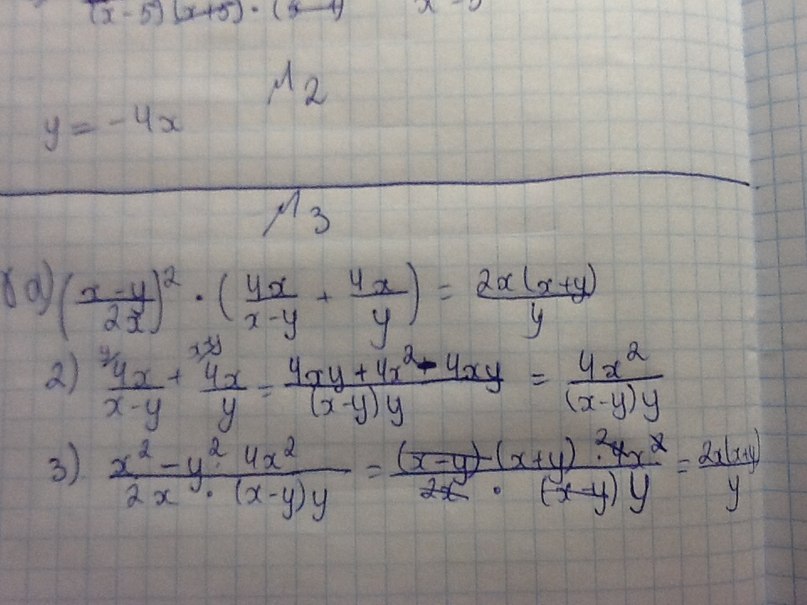 (x-5)(x+5) · (x-1) x-5
№2
y = -4x
№3
а) ((x-y)/2x)² · (4x/(x-y) + 4x/y) = 2x(x+y)/y
2) y/ 4x/(x-y) + x-y/ 4x/y = (4xy + 4x² - 4xy)/((x-y)y) = 4x²/((x-y)y)
3) (x² - y² · 4x²)/(2x · (x-y)y) = ((x-y) · (x+y) · ²4x²)/(2x · (x-y) y) = 2x(x+y)/y